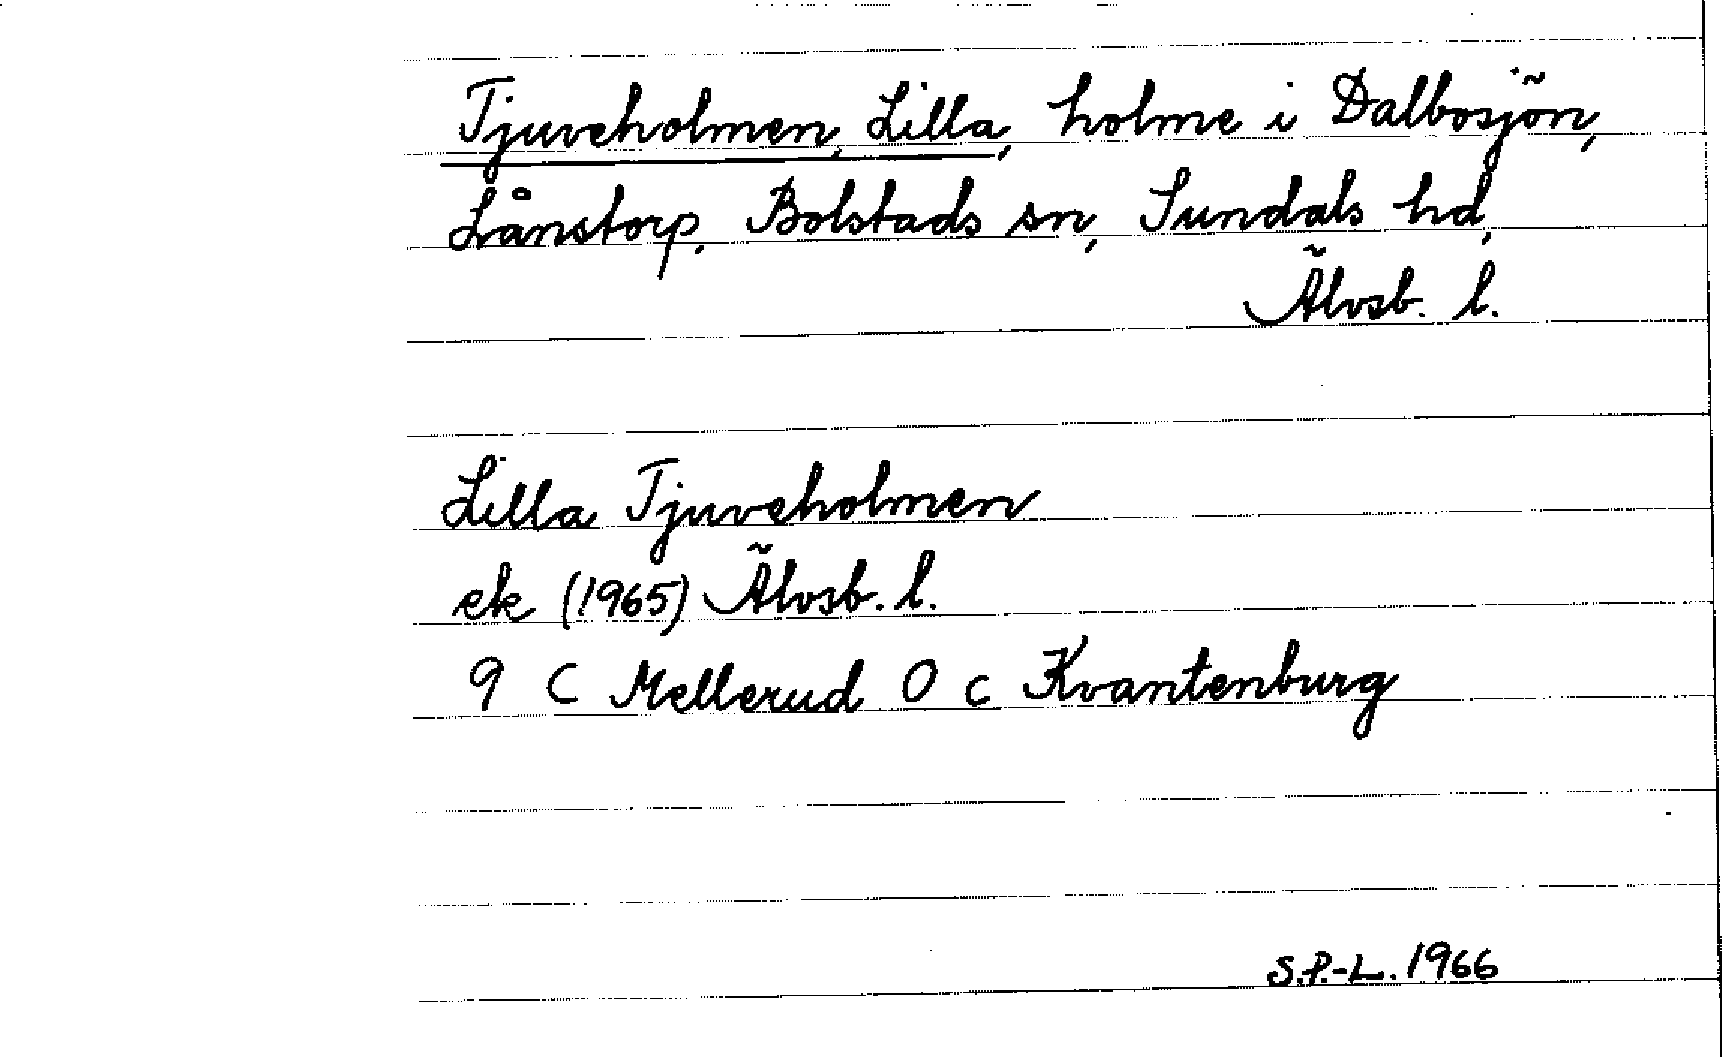 Tjuveholmen, Lilla, holme i Dalbosjön,
Lånstorp, Bolstads sn, Sundals hd,
Älvsb. l.
Lilla Tjuveholmen
ek (1965) Älvsb. l.
9 C Mellerud O c Kvantenburg
S.P.-L. 1966